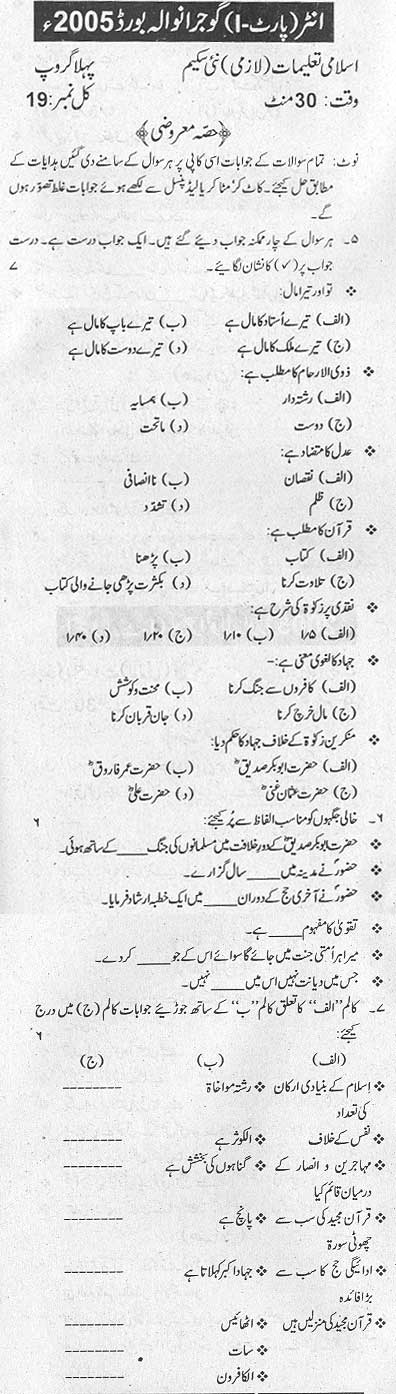 انٹر (پارٹ-I) گوجرانوالہ بورڈ 2005ء
اسلامی تعلیمات (لازمی) نئی سکیم پہلا گروپ
وقت: 30 منٹ کل نمبر: 19
﴿حصہ معروضی﴾
نوٹ: تمام سوالات کے جوابات اسی کاپی پر ہر سوال کے سامنے دی گئیں ہدایات کے
مطابق حل کیجئے۔ کاٹ کر مٹا کر یا لیڈ پنسل سے لکھے ہوئے جوابات غلط تصور ہوں
گے۔
۵۔ ہر سوال کے چار ممکنہ جواب دیئے گئے ہیں۔ ایک جواب درست ہے۔ درست
جواب پر (✓) کا نشان لگائیے۔ ۷
❖ تو اور تیرا مال:
(الف) تیرے اُستاد کا مال ہے (ب) تیرے باپ کا مال ہے
(ج) تیرے ملک کا مال ہے (د) تیرے دوست کا مال ہے
❖ ذوی الارحام کا مطلب ہے:
(الف) رشتہ دار (ب) ہمسایہ
(ج) دوست (د) ماتحت
❖ عدل کا متضاد ہے:
(الف) نقصان (ب) ناانصافی
(ج) ظلم (د) تشدّد
❖ قرآن کا مطلب ہے:
(الف) کتاب (ب) پڑھنا
(ج) تلاوت کرنا (د) بکثرت پڑھی جانے والی کتاب
❖ نقدی پر زکوٰۃ کی شرح ہے:
(الف) ۱/۵ (ب) ۱/۱۰ (ج) ۱/۲۰ (د) ۱/۴۰
❖ جہاد کا لغوی معنی ہے:-
(الف) کافروں سے جنگ کرنا (ب) محنت و کوشش
(ج) مال خرچ کرنا (د) جان قربان کرنا
❖ منکرین زکوٰۃ کے خلاف جہاد کا حکم دیا:
(الف) حضرت ابوبکر صدیقؓ (ب) حضرت عمر فاروقؓ
(ج) حضرت عثمان غنیؓ (د) حضرت علیؓ
۶۔ خالی جگہوں کو مناسب الفاظ سے پُر کیجئے: ۶
❖ حضرت ابوبکر صدیقؓ کے دور خلافت میں مسلمانوں کی جنگ ____ کے ساتھ ہوئی۔
❖ حضورؐ نے مدینہ میں ____ سال گزارے۔
❖ حضورؐ نے آخری حج کے دوران ____ میں ایک خطبہ ارشاد فرمایا۔
❖ تقویٰ کا مفہوم ____ ہے۔
❖ میرا ہر اُمتی جنت میں جائے گا سوائے اس کے جو ____ کر دے۔
❖ جس میں دیانت نہیں اس میں ____ نہیں۔
۷۔ کالم "الف" کا تعلق کالم "ب" کے ساتھ جوڑیئے جوابات کالم (ج) میں درج
کیجئے: ۶
(الف) (ب) (ج)
❖ اسلام کے بنیادی ارکان ❖ رشتہ مواخاۃ --------
کی تعداد
❖ نفس کے خلاف ❖ الکوثر ہے --------
❖ مہاجرین و انصار کے ❖ گناہوں کی بخشش ہے --------
درمیان قائم کیا
❖ قرآن مجید کی سب سے ❖ پانچ ہے --------
چھوٹی سورۃ
❖ ادائیگی حج کا سب سے ❖ جہاد اکبر کہلاتا ہے --------
بڑا فائدہ
❖ قرآن مجید کی منزلیں ہیں ❖ اٹھائیس --------
❖ سات --------
❖ الکافرون --------